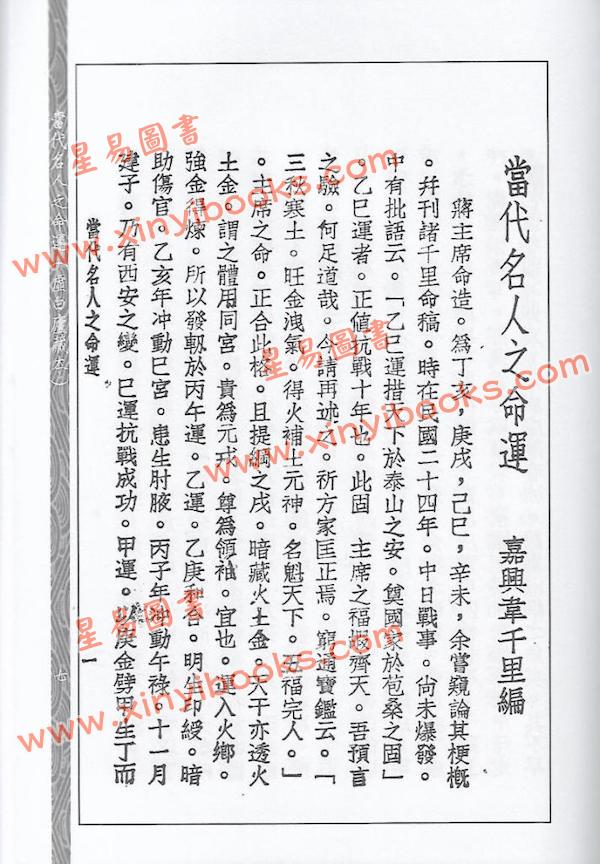 當代名人之命運 嘉興韋千里編
蔣主席命造。為丁亥,庚戌,己巳,辛未,余嘗窺論其梗概
。幷刊諸千里命稿。時在民國二十四年。中日戰事。尚未爆發。
中有批語云。「乙巳運措天下於泰山之安。奠國家於苞桑之固」
。乙巳運者。正值抗戰十年也。此固 主席之福嘏齊天。吾預言
之驗。何足道哉。今請再述之。祈方家匡正焉。窮通寶鑑云。「
三秋寒土。旺金洩氣。得火補土元神。名魁天下。五福完人。」
。主席之命。正合此格。且提綱之戌。暗藏火土金。天干亦透火
土金。謂之體用同宮。貴為元戎。尊為領袖。宜也。運入火鄉。
強金得煉。所以發軔於丙午運。乙運。乙庚和合。明生印綬。暗
助傷官。乙亥年冲動巳宮。患生肘腋。丙子年冲動午祿。十一月
建子。乃有西安之變。巳運抗戰成功。甲運。庚金劈甲生丁而
當代名人之命運 一
當代名人之命運
七
星易圖書
www.xinyibooks.com
星易圖書
www.xinyibooks.com
星易圖書
www.xinyibooks.com